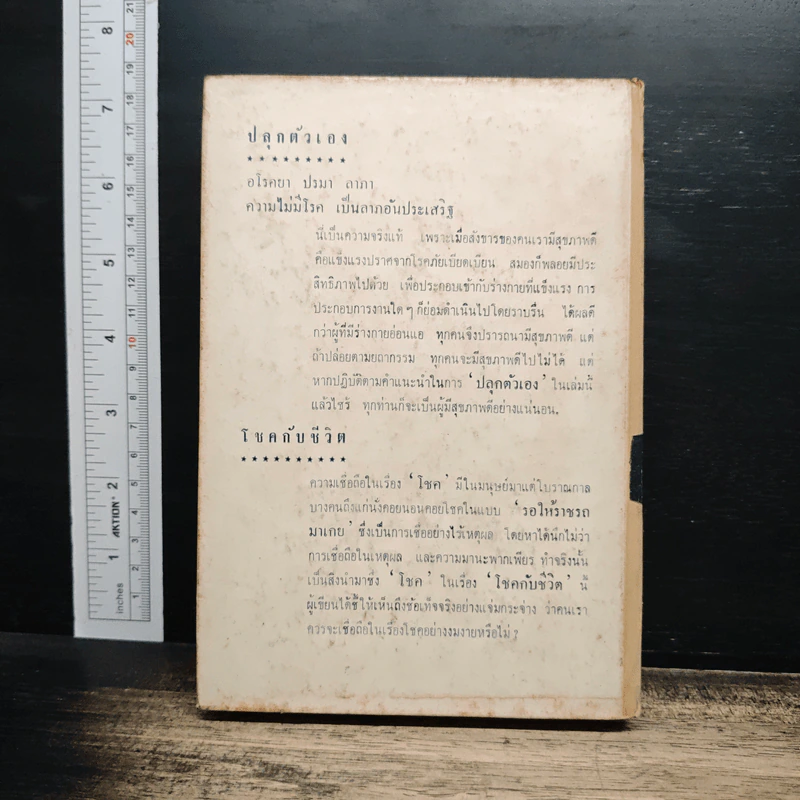 ปลุกตัวเอง
* * * * * * * * *
อโรคยา ปรมา ลาภา
ความไม่มีโรค เป็นลาภอันประเสริฐ
นี่เป็นความจริงแท้ เพราะเมื่อสังขารของคนเรามีสุขภาพดี
คือแข็งแรงปราศจากโรคภัยเบียดเบียน สมองก็พลอยมีประ
สิทธิภาพไปด้วย เพื่อประกอบเข้ากับร่างกายที่แข็งแรง การ
ประกอบการงานใด ๆ ก็ย่อมดำเนินไปโดยราบรื่น ได้ผลดี
กว่าผู้ที่มีร่างกายอ่อนแอ ทุกคนจึงปรารถนามีสุขภาพดี แต่
ถ้าปล่อยตามยถากรรม ทุกคนจะมีสุขภาพดีไปไม่ได้ แต่
หากปฏิบัติตามคำแนะนำในการ ‘ปลุกตัวเอง’ ในเล่มนี้
แล้วไซร้ ทุกท่านก็จะเป็นผู้มีสุขภาพดีอย่างแน่นอน.
โชคกับชีวิต
* * * * * * * * * *
ความเชื่อถือในเรื่อง ‘โชค’ มีในมนุษย์มาแต่โบราณกาล
บางคนถึงแก่นั่งคอยนอนคอยโชคในแบบ ‘รอให้ราชรถ
มาเกย’ ซึ่งเป็นการเชื่ออย่างไร้เหตุผล โดยหาได้นึกไม่ว่า
การเชื่อถือในเหตุผล และความมานะพากเพียร ทำจริงนั้น
เป็นสิ่งนำมาซึ่ง ‘โชค’ ในเรื่อง ‘โชคกับชีวิต’ นี้
ผู้เขียนได้ชี้ให้เห็นถึงข้อเท็จจริงอย่างแจ่มกระจ่าง ว่าคนเรา
ควรจะเชื่อถือในเรื่องโชคอย่างงมงายหรือไม่ ?
8
7
6
5
4
3
2
1
inches
AKTION
21
20
19
18
17
16
15
14
13
12
11
10
9
8
7
6
5
4
3
2
1